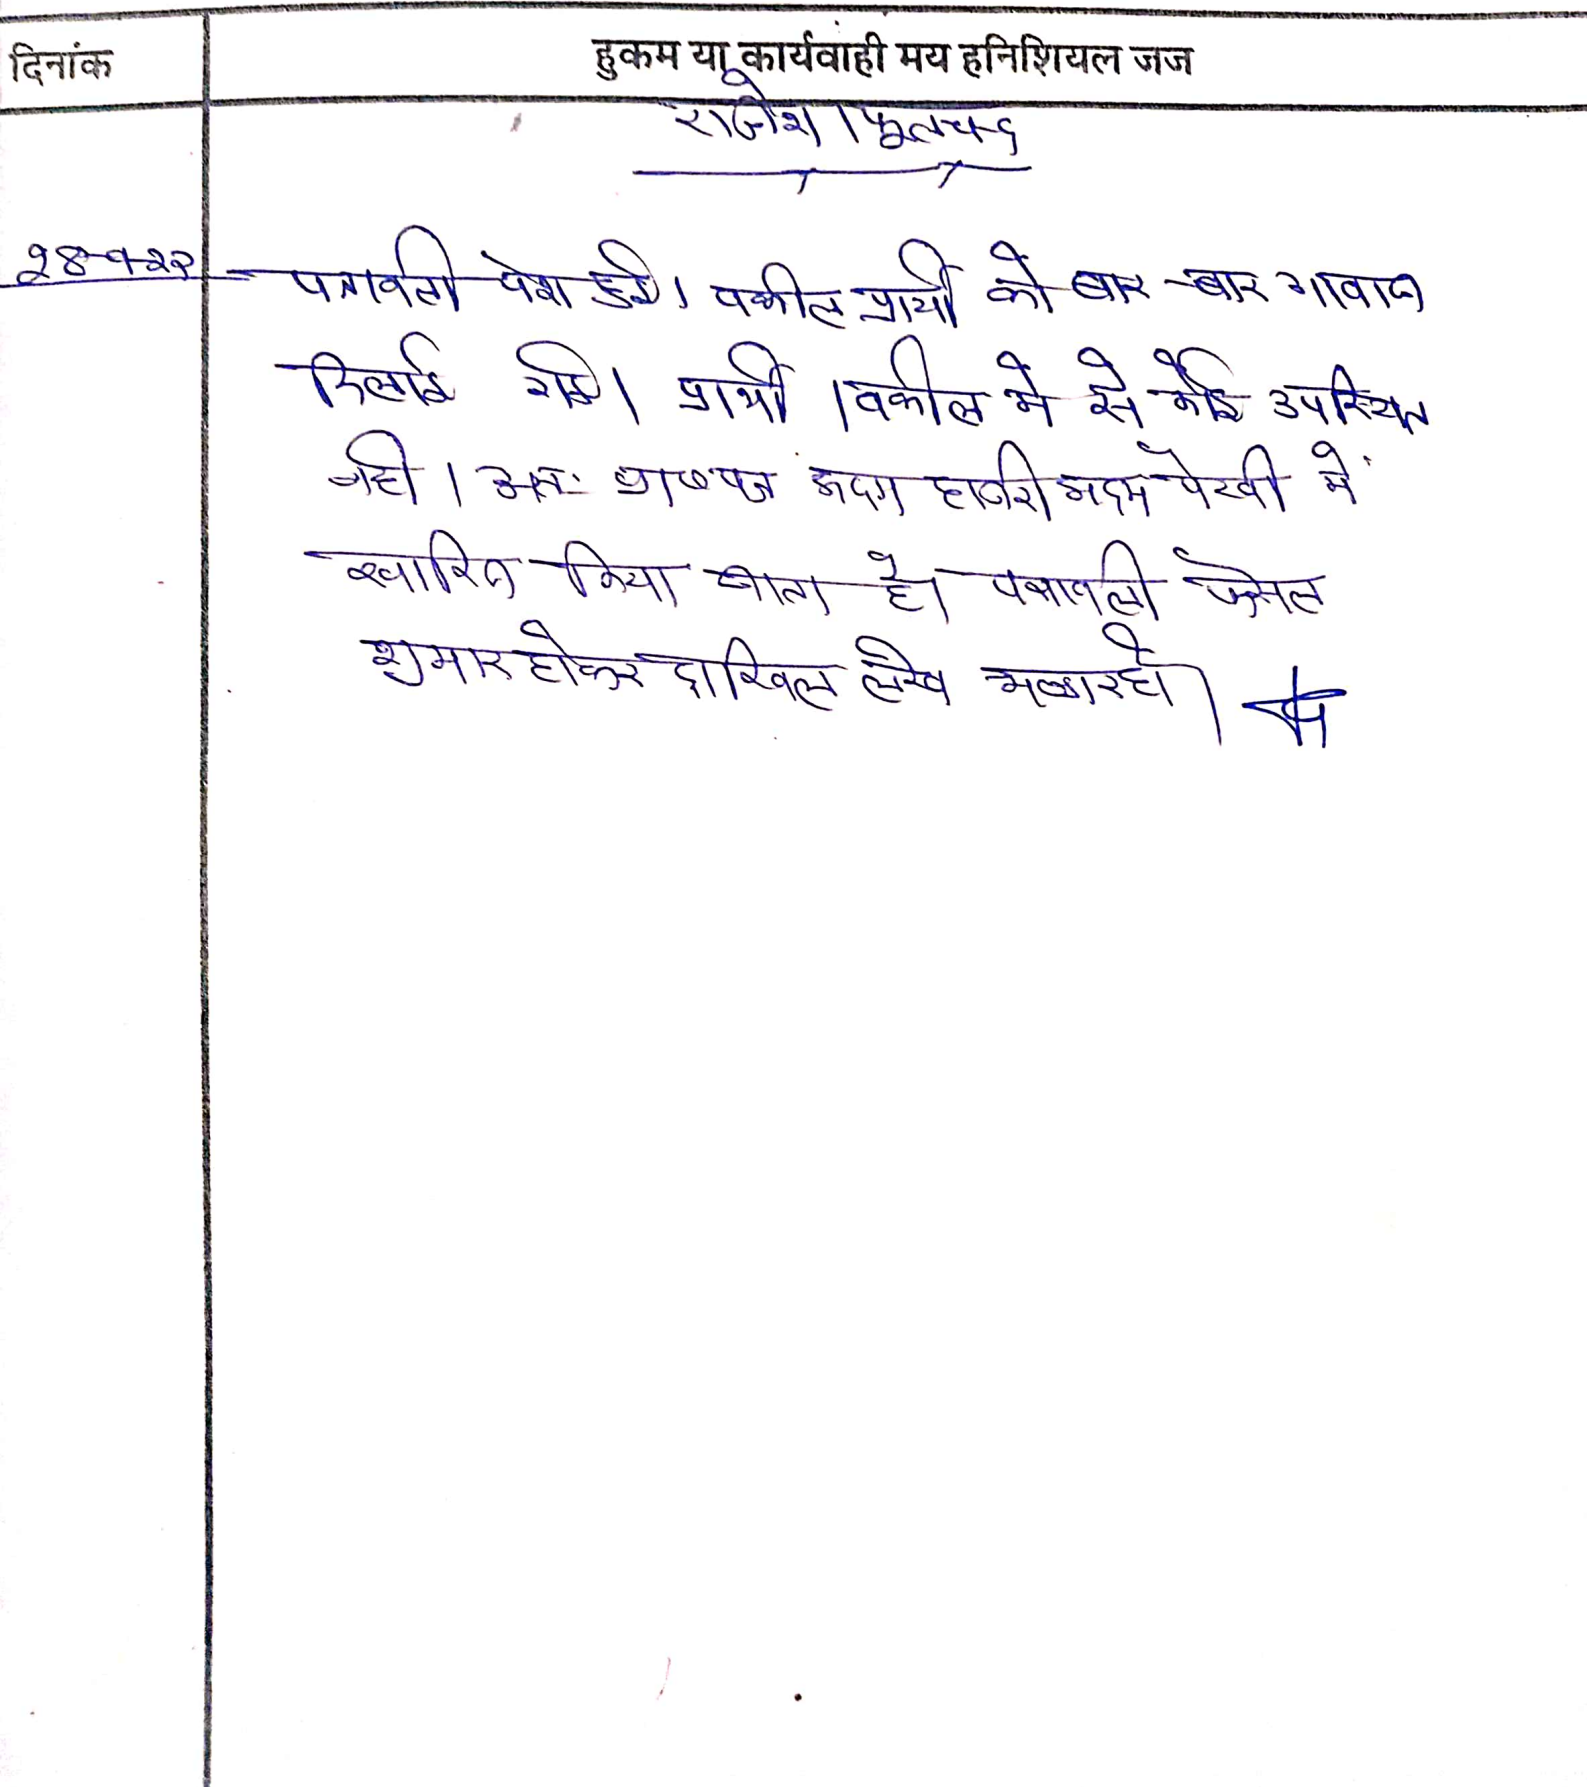 दिनांक
हुकम या कार्यवाही मय हनिशियल जज
राजेश / फूलचन्द
पत्रावली पेश हुई। वकील प्रार्थी को बार-बार आवाज
दिलाई गई। प्रार्थी / वकील मे से कोई उपस्थित
नही। अतः प्रा० पत्र अदम हाजरी अदम पैरवी में
खारिज किया जाता है। पत्रावली फैसल
शुमार होकर दाखिल लेख भण्डार हो।